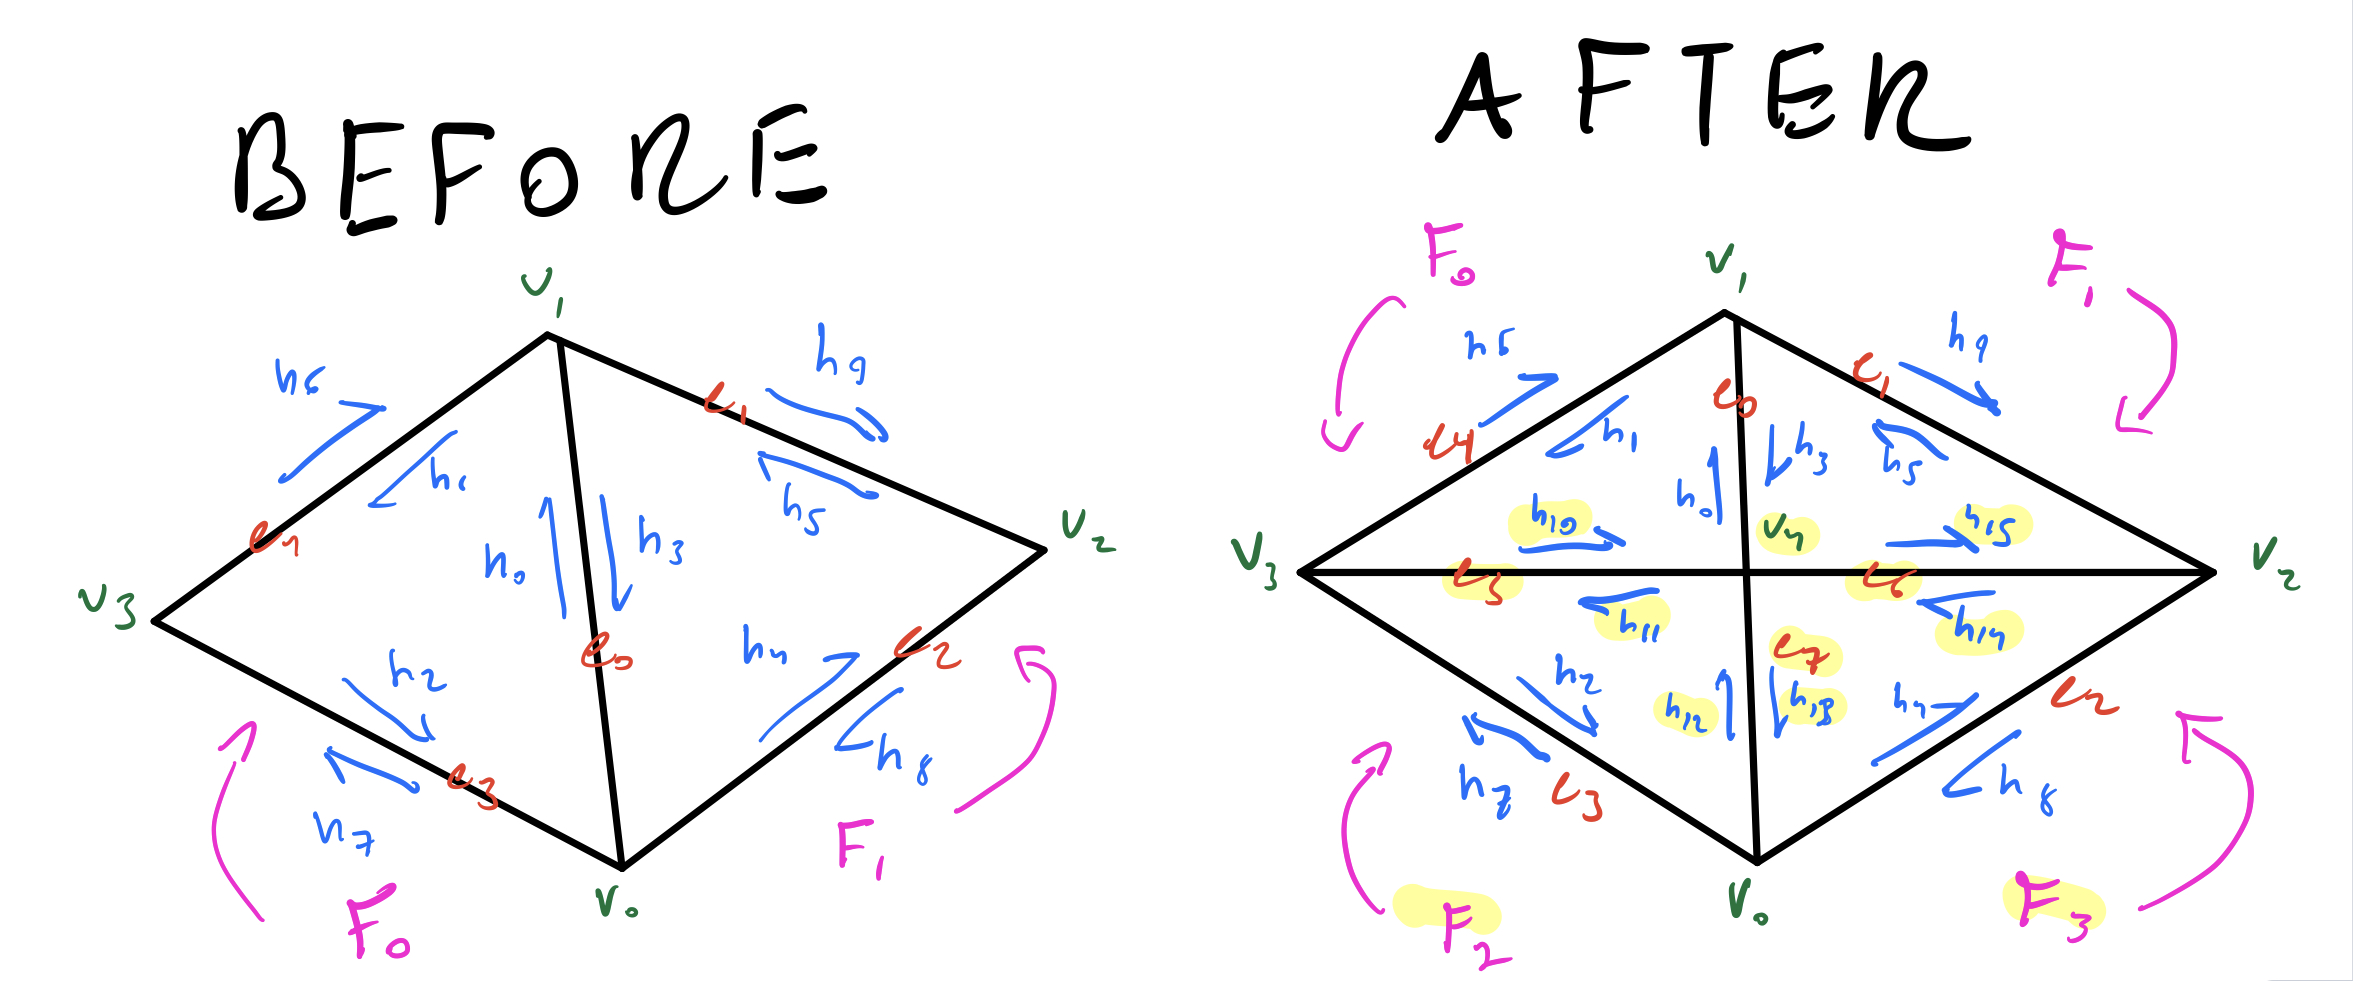 BEFORE
v1
h6
h9
e1
h1
h5
v2
e4
h0
h3
v3
e0
h4
e2
h2
h8
e3
h7
F1
v0
F0
AFTER
F0
v1
F1
h6
h9
e1
e0
e4
h1
h3
h5
h0
h10
v4
h15
v3
v2
e5
e6
h11
h14
e7
h2
h12
h13
h4
e2
h7
e3
h8
F2
v0
F3